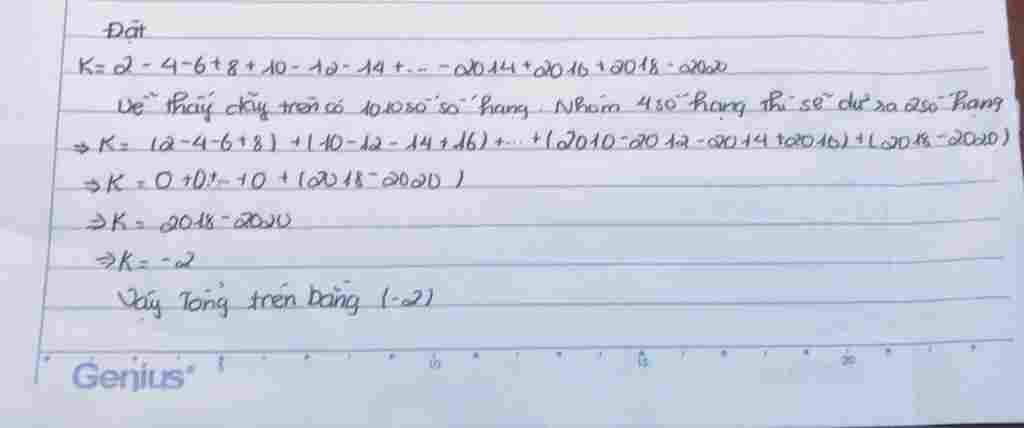 Đặt
K= 2 - 4 - 6 + 8 + 10 - 12 - 14 + ... - 2014 + 2016 + 2018 - 2020
Dễ thấy dãy trên có 1010 số số hạng. Nhóm 4 số hạng thì sẽ dư ra 2 số hạng
⇒ K= (2-4-6+8) + (10-12-14+16) +...+ (2010-2012-2014+2016) + (2018-2020)
⇒ K = 0 + 0 +...+ 0 + (2018-2020)
⇒ K = 2018 - 2020
⇒ K = -2
Vậy Tổng trên bằng (-2)
10 15 20
Genius